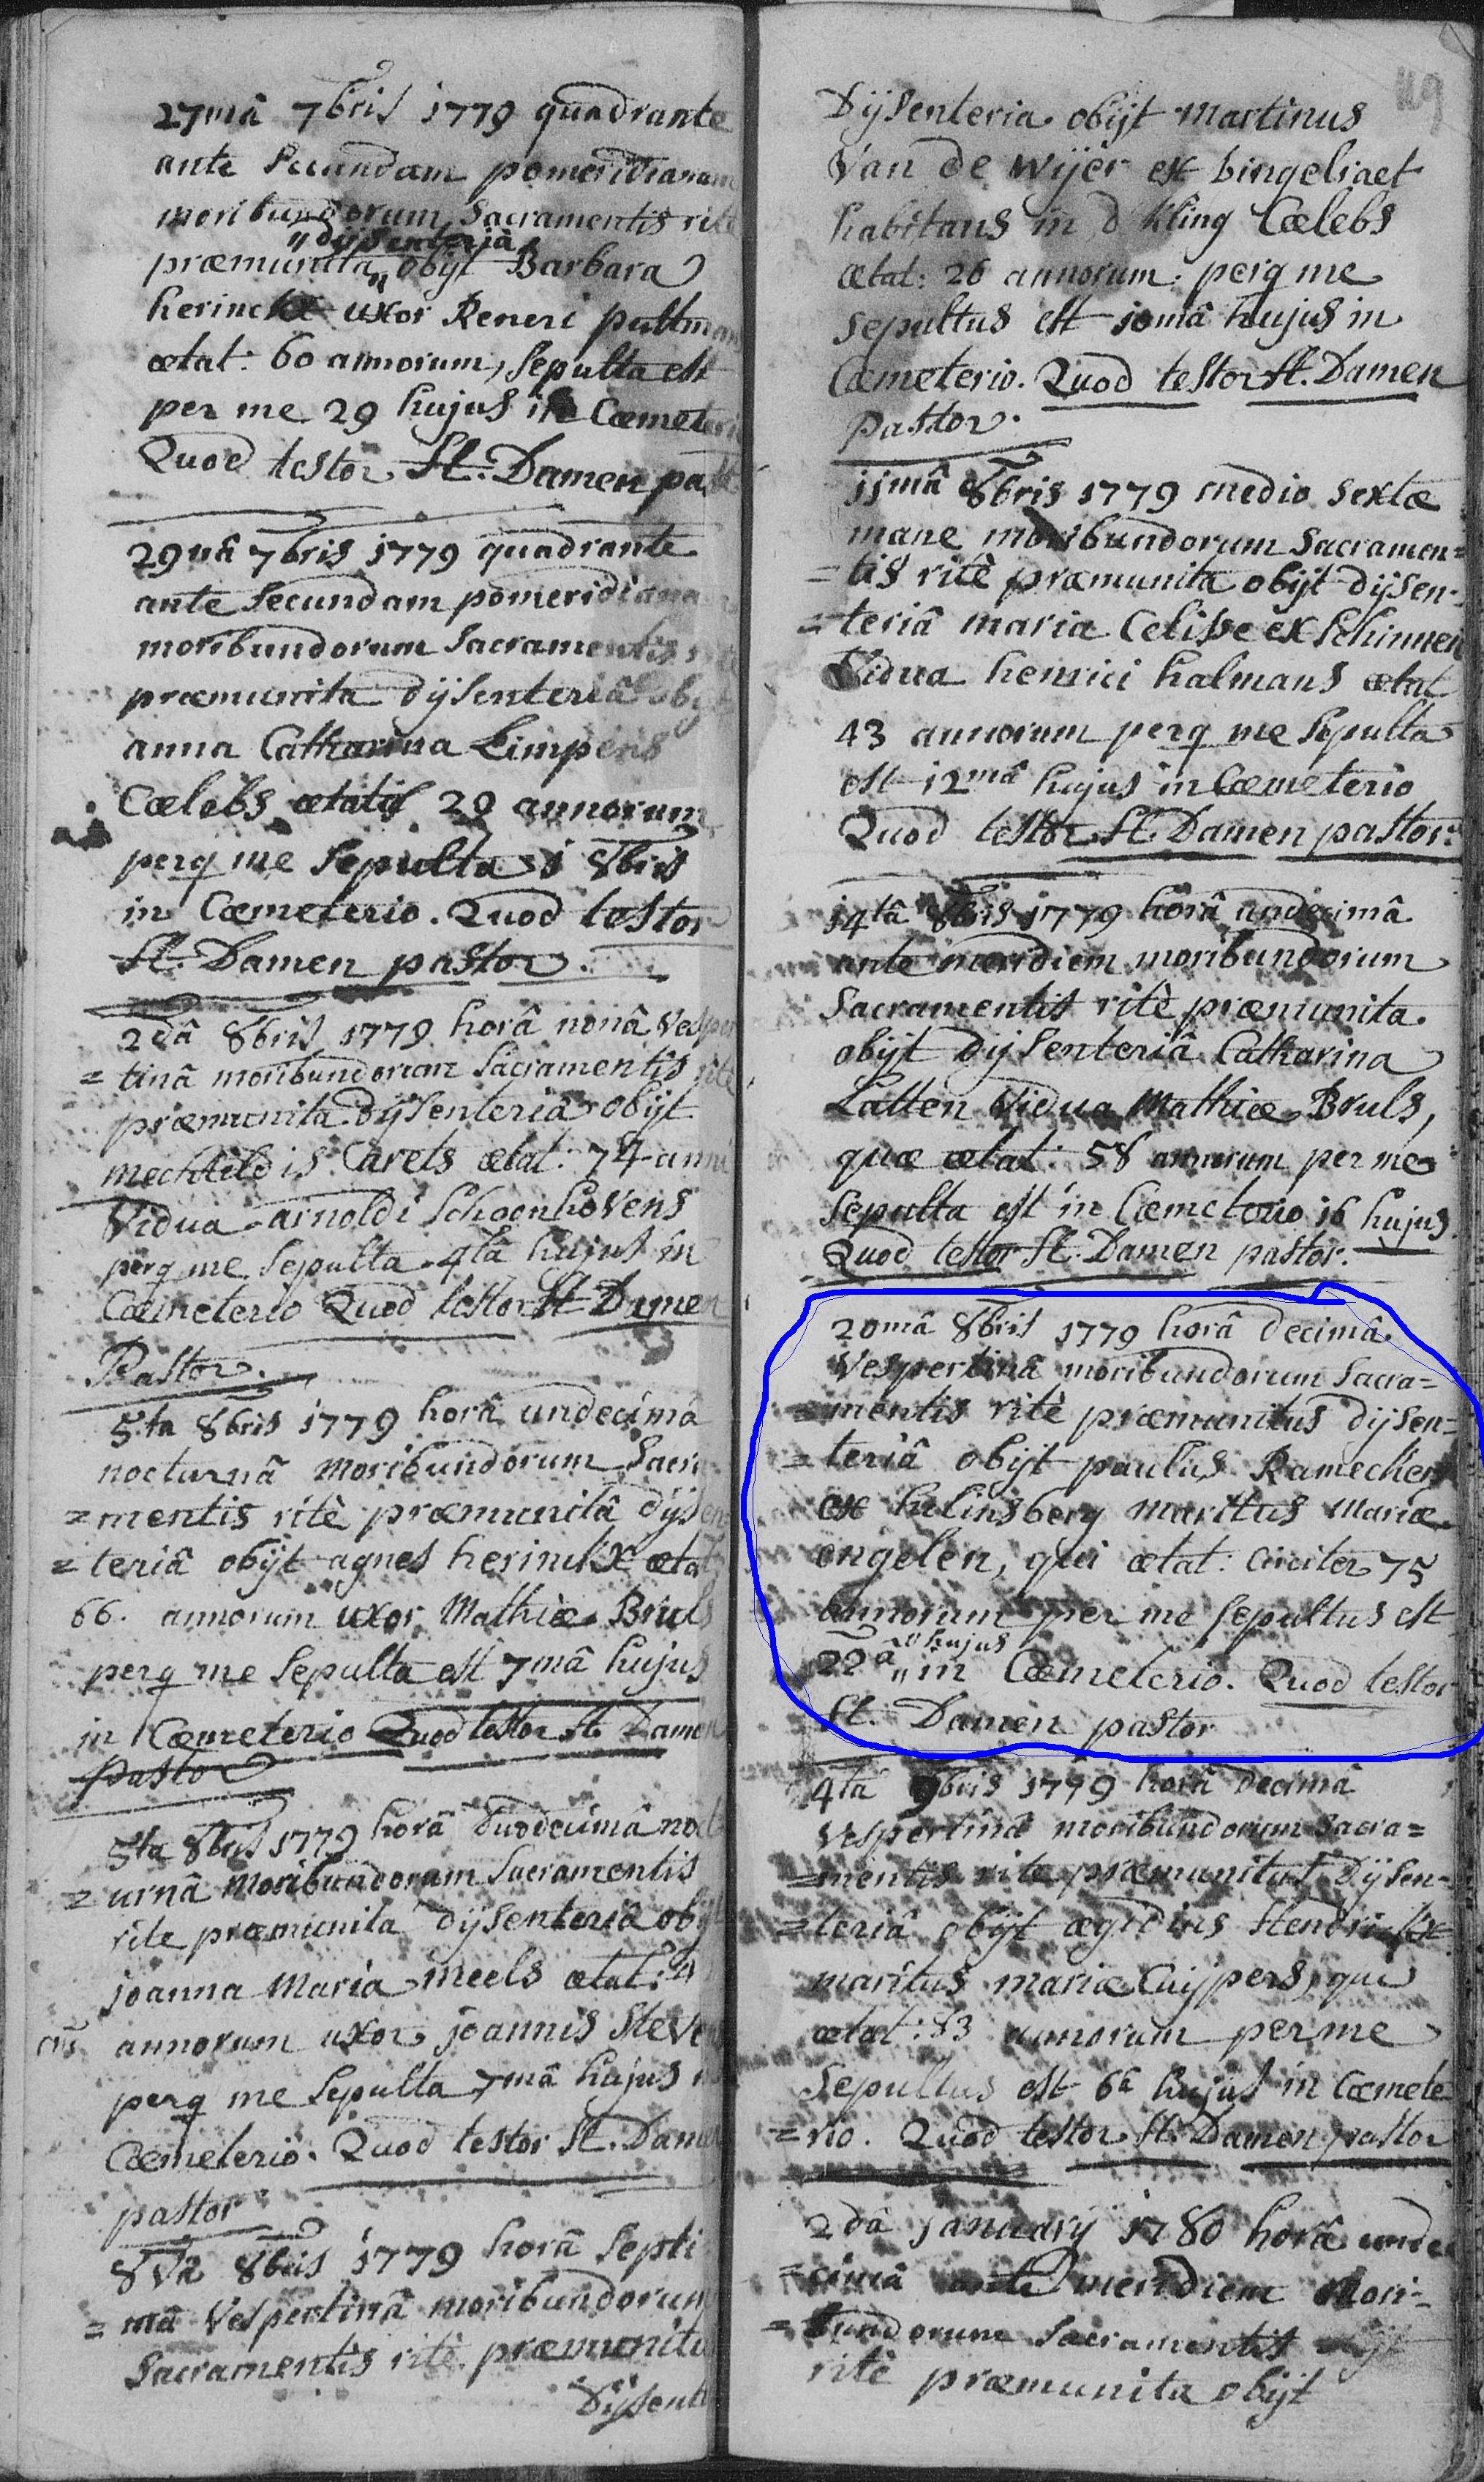 27mâ 7bris 1779 quadrante
ante secundam pomeridianam
moribundorum Sacramentis rite
"dijsenteriâ
præmunita" obijt Barbara
herinckx uxor Reneri
ætat: 60 annorum, Sepulta est
per me 29 hujus in Cœmeterio
Quod testor St. Damen past
29nâ 7bris 1779 quadrante
ante Secundam pomeridiana
moribundorum Sacramentis
præmunita dijsenteriâ obijt
anna Catharina Limpens
Cælebs ætatis 29 annorum
perq me Sepulta 1 8bris
in Cœmeterio. Quod testor
St. Damen pastor.
2dâ 8bris 1779 horâ nonâ Vesper
= tinâ moribundorum Sacramentis rite
præmunita dijsenteriâ obijt
mechtildis Carels ætat: 74 anni
Vidua arnoldi Schoenhovens
perq me Sepulta 4tâ hujus in
Cœmeterio Quod testor St Damen
Pastor.
5ta 8bris 1779 horâ undecimâ
nocturnâ Moribundorum Sacra
= mentis ritè præmunitâ dijsen
= teriâ obijt agnes herinckx ætat
66. annorum uxor Mathiæ Bruls
perq me Sepulta est 7mâ hujus
in Cœmeterio Quod testor St Damen
Pastor
5ta 8bris 1779 horâ duodecimâ noct
= urnâ Moribundorum Sacramentis
rite præmunita dijsenteriâ obijt
joanna Maria meels ætat:
annorum uxor joannis Steve
perq me Sepulta 7mâ hujus
Cœmeterio. Quod testor St. Damen
pastor
8va 8bris 1779 horâ Septi
= mâ Vespertinâ moribundorum
Sacramentis ritè præmunitu
Dijsent
119
Dijsenteria obijt Martinus
Van de Wijer ex bingeliaet
habitans in d kling Cælebs
ætat: 26 annorum. perq me
Sepultus est 10mâ hujus in
Cœmeterio. Quod testor St. Damen
pastor.
11mâ 8bris 1779 medio Sextæ
mane moribundorum Sacramen=
= tis ritè præmunita obijt dijsen-
= teriâ maria Celisse ex Schinnen
Vidua henrici halmans ætat
43 annorum perq me Sepulta
est 12mâ hujus in Cœmeterio
Quod testor St. Damen pastor.
14tâ 8bris 1779 horâ undecimâ
ante meridiem moribundorum
Sacramentis ritè præmunita
obijt dijsenteriâ Catharina
Latten Vidua Mathiæ Bruls,
quæ ætat: 58 annorum per me
Sepulta est in Cœmeterio 16 hujus
Quod testor St. Damen pastor.
20mâ 8bris 1779 horâ decimâ
Vespertinâ moribundorum Sacra=
= mentis ritè præmunitus dijsen=
= teriâ obijt paulus Rameckers
ex helinsberg maritus Mariæ
engelen, qui ætat: circiter 75
annorum per me Sepultus est
" hujus
22â " in Cœmeterio. Quod testor
St. Damen pastor
4ta 9bris 1779 horâ decimâ
Vespertinâ moribundorum Sacra=
= mentis rite præmunitus Dijsen-
= teriâ obijt ægidius Hendrickx
maritus mariæ Cuijpers, qui
ætat: 83 annorum per me
Sepultus est 6â hujus in Cœmete
= rio. Quod testor St. Damen pastor
2dâ januarij 1780 horâ unde
= cimâ ante meridiem Mori=
= bundorum Sacramentis
ritè præmunita obijt